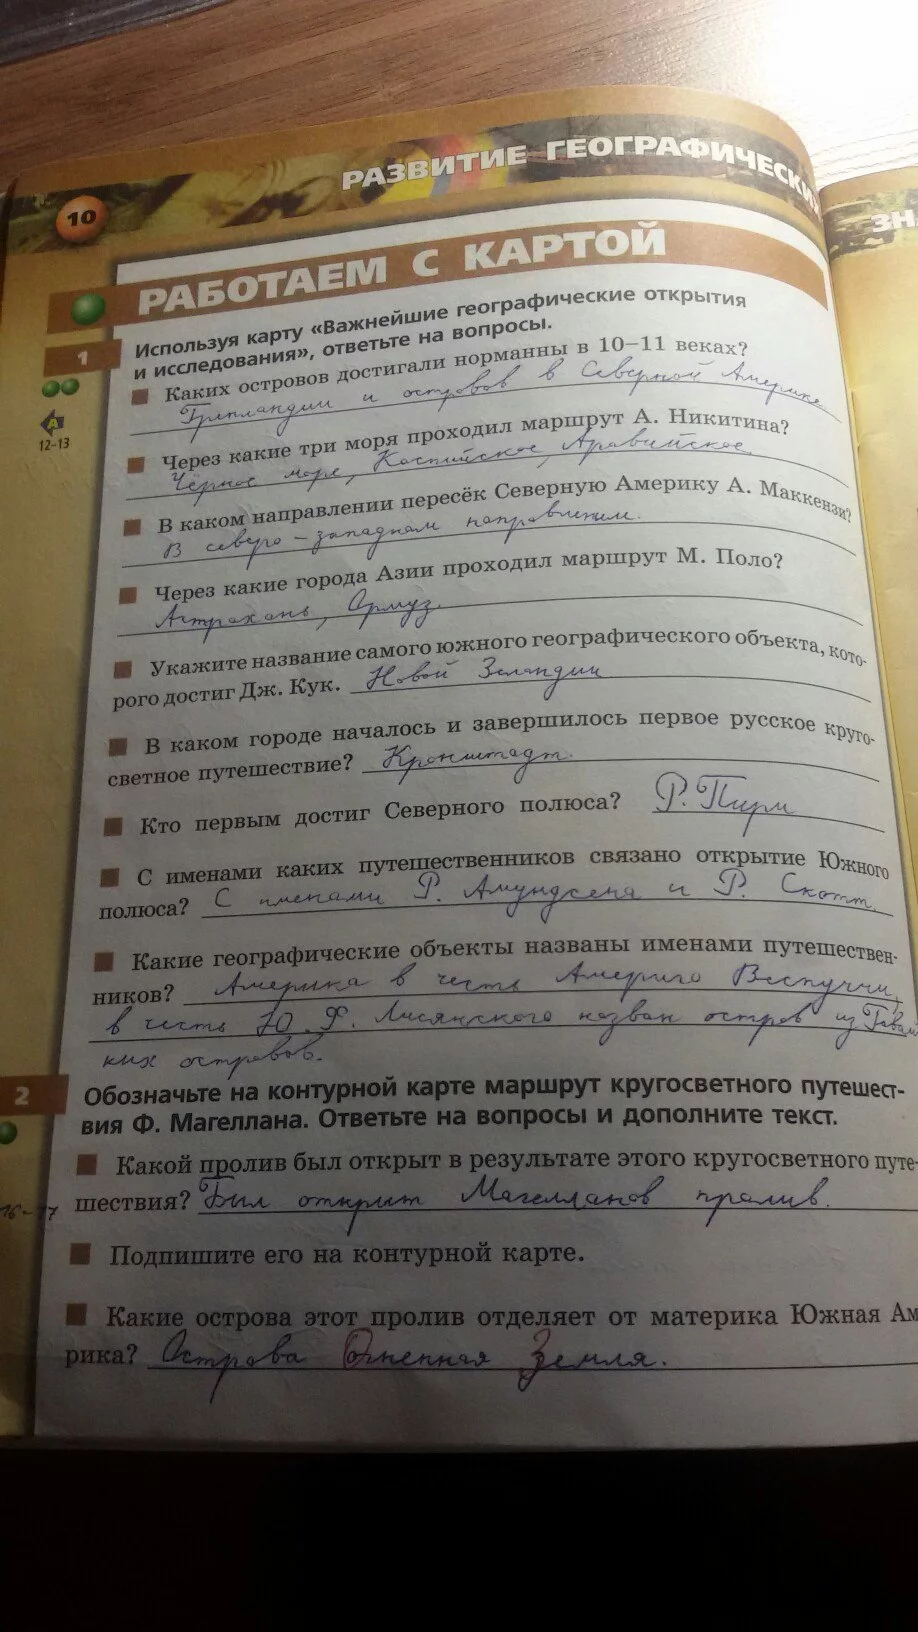 10
РАЗВИТИЕ ГЕОГРАФИЧЕСКИ
ЗН
РАБОТАЕМ С КАРТОЙ
1
Используя карту «Важнейшие географические открытия
и исследования», ответьте на вопросы.
Каких островов достигали норманны в 10–11 веках?
Гренландии и островов в Северной Америке.
А
12–13
Через какие три моря проходил маршрут А. Никитина?
Чёрное море, Каспийское, Аравийское.
В каком направлении пересёк Северную Америку А. Маккензи?
В северо-западном направлении.
Через какие города Азии проходил маршрут М. Поло?
Астрахань, Ормуз.
Укажите название самого южного географического объекта, кото-
рого достиг Дж. Кук. Новой Зеландии
В каком городе началось и завершилось первое русское круго-
светное путешествие? Кронштадт.
Кто первым достиг Северного полюса? Р. Пири
С именами каких путешественников связано открытие Южного
полюса? С именами Р. Амундсена и Р. Скотт.
Какие географические объекты названы именами путешествен-
ников? Америка в честь Америго Веспуччи,
в честь Ю. Ф. Лисянского назван остров из Гавай
ких островов.
2
Обозначьте на контурной карте маршрут кругосветного путешест-
вия Ф. Магеллана. Ответьте на вопросы и дополните текст.
Какой пролив был открыт в результате этого кругосветного путе-
шествия? Был открыт Магелланов пролив.
16–17
Подпишите его на контурной карте.
Какие острова этот пролив отделяет от материка Южная Аме
рика? Острова Огненная Земля.